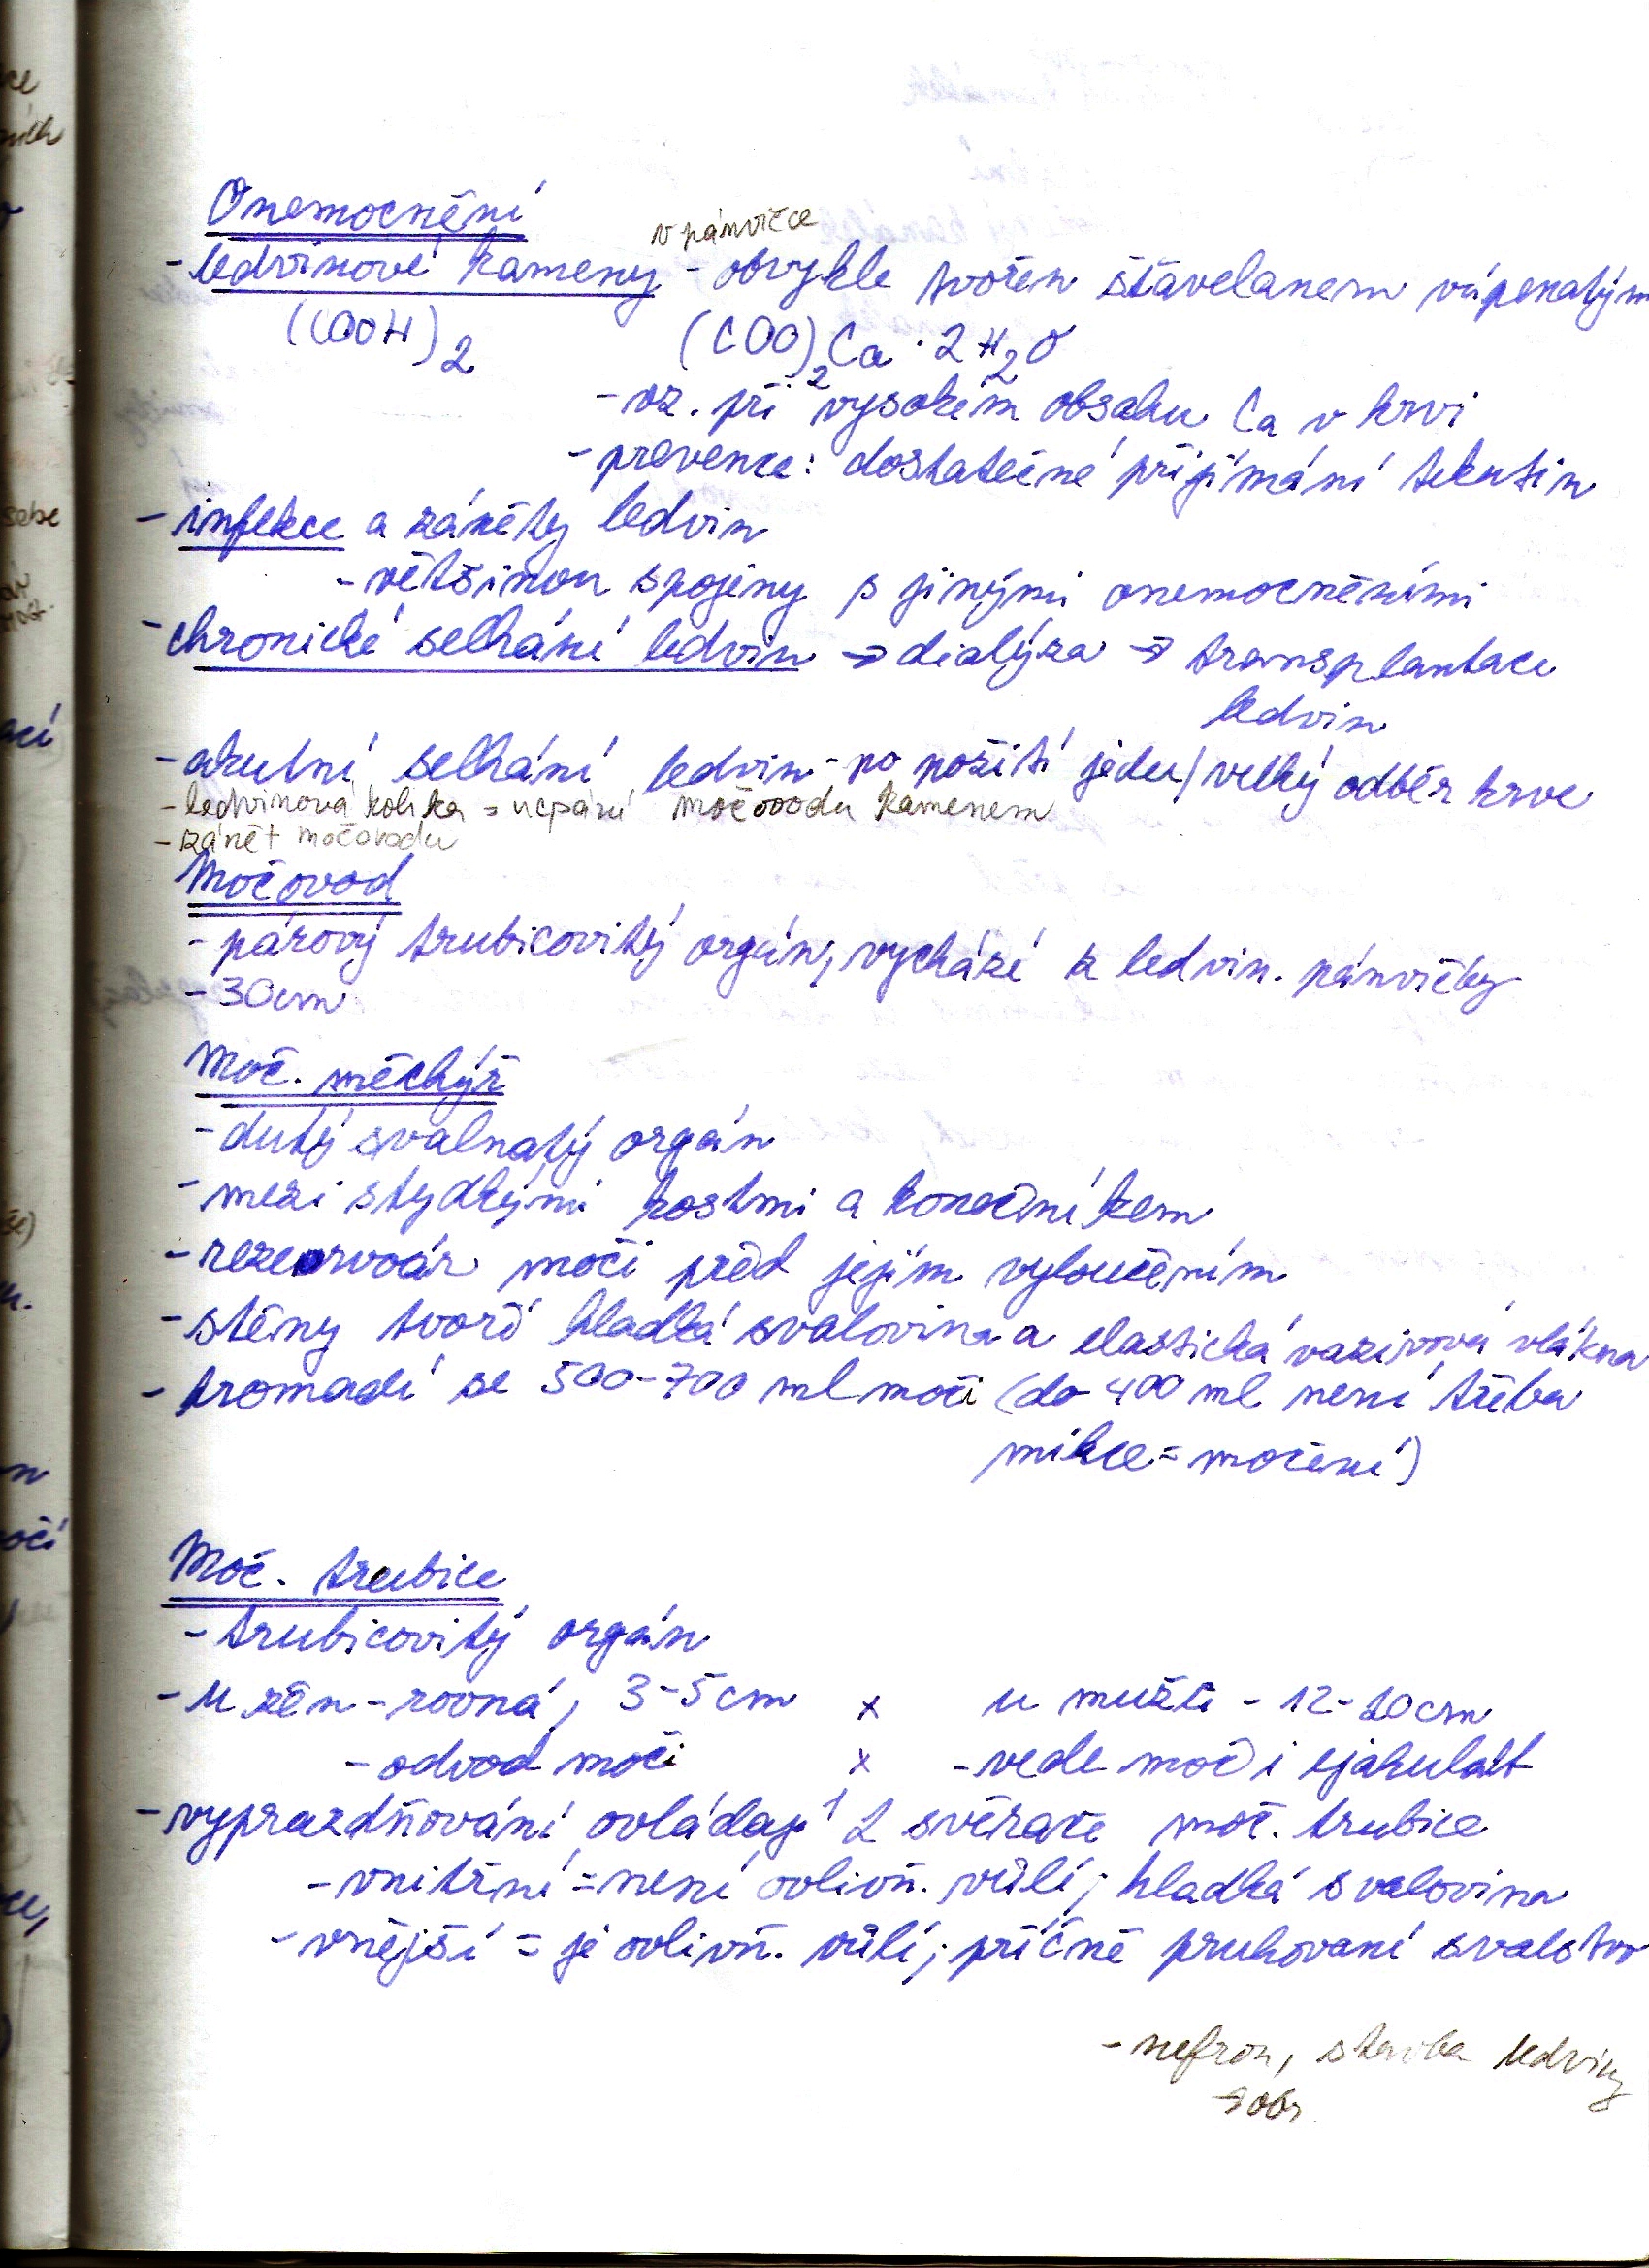 Onemocnění
v pánvičce
- ledvinové kameny - obvykle tvořen šťavelanem vápenatým
(COOH)2 (COO)2Ca · 2H2O
- vz. při vysokém obsahu Ca v krvi
- prevence: dostatečné přijímání tekutin
- infekce a záněty ledvin
- většinou spojeny s jinými onemocněními
- chronické selhání ledvin → dialýza → transplantace
ledvin
- akutní selhání ledvin - po požití jedu / velký odběr krve
- ledvinová kolika = ucpání močovodu kamenem
- zánět močovodu
Močovod
- párový trubicovitý orgán, vychází z ledvin. pánvičky
- 30cm
Moč. měchýř
- dutý svalnatý orgán
- mezi stydkými kostmi a konečníkem
- rezervoár moči před jejím vyloučením
- stěny tvoří hladká svalovina a elastická vazivová vlákna
- hromadí se 500-700 ml moči (do 400 ml není třeba
mikce = močení)
Moč. trubice
- trubicovitý orgán
- u žen - rovná, 3-5cm x u mužů - 12-20cm
- odvod moči x - vede moč i ejakulát
- vyprazdňování ovládají 2 svěrače moč. trubice
- vnitřní = není ovlivň. vůlí; hladká svalovina
- vnější = je ovlivň. vůlí; příčně pruhované svalstvo
- nefron, stavba ledviny
→ obr.